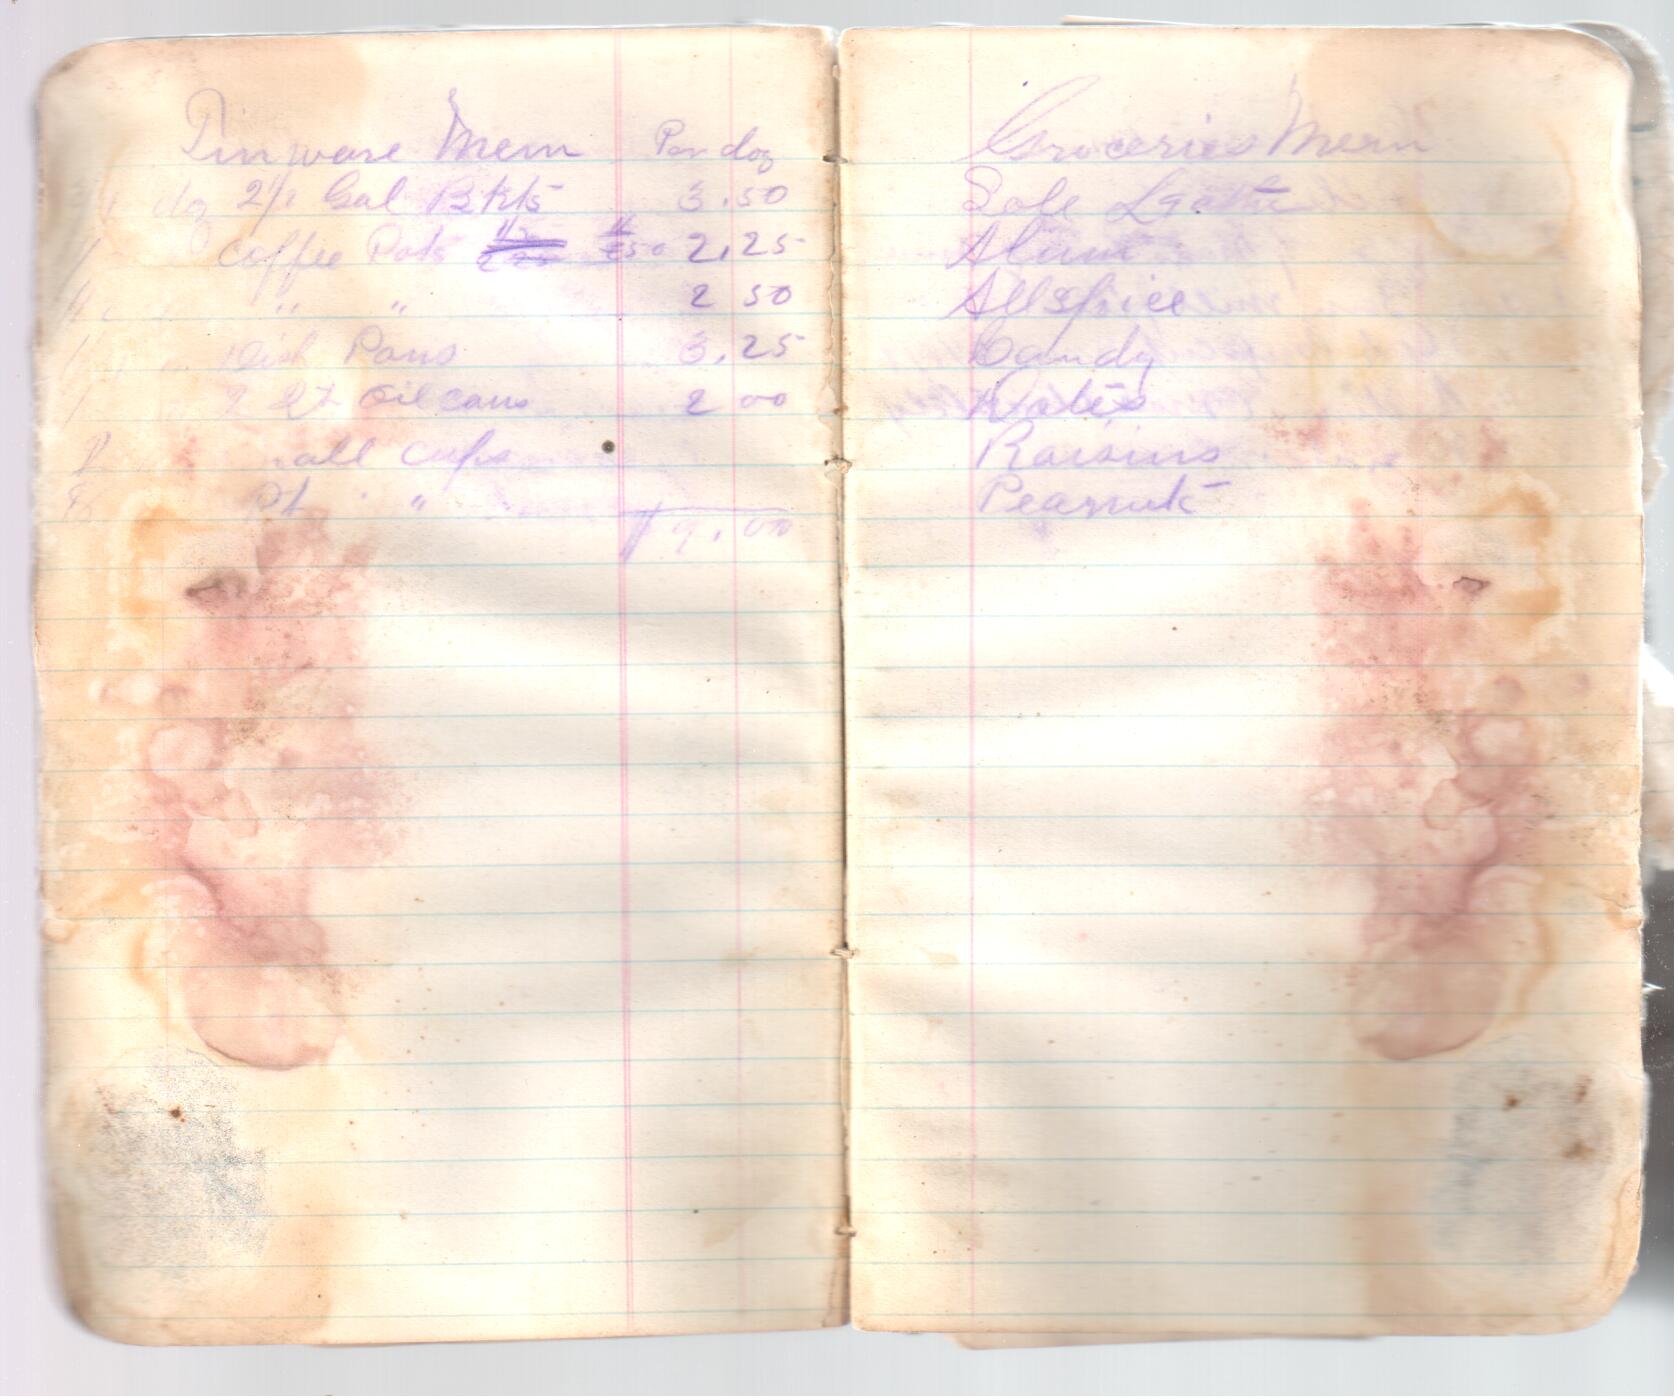 Tinware Mem Per doz
dz 2 1/2 Gal Bkts 3.50
Coffee Pots 2.25
" " 2 50
Dish Pans 3.25
2 Qt Oil cans 2 00
Small cups
Pt "
9.00
Groceries Mem
Sole Leather
Alum
Allspice
Candy
Dates
Raisins
Peanuts